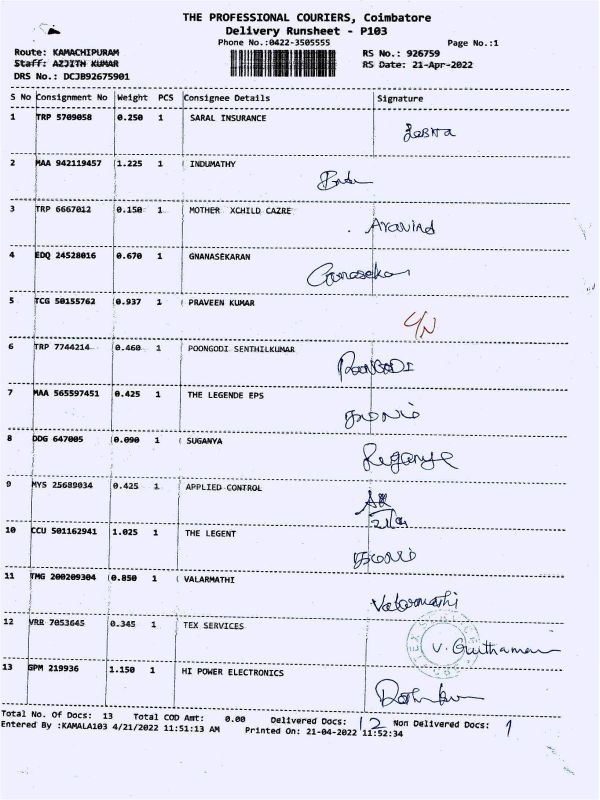 THE PROFESSIONAL COURIERS, Coimbatore
Delivery Runsheet - P103
Phone No.:0422-3505555 Page No.:1
Route: KAMACHIPURAM RS No.: 926759
Staff: AZJITH KUMAR RS Date: 21-Apr-2022
DRS No.: DCJB92675901
S No Consignment No Weight PCS Consignee Details Signature
1 TRP 5709058 0.250 1 SARAL INSURANCE
2 MAA 942119457 1.225 1 INDUMATHY
3 TRP 6667012 0.150 1 MOTHER XCHILD CAZRE Aravind
4 EDQ 24528016 0.670 1 GNANASEKARAN Gnanasekaran
5 TCG 50155762 0.937 1 PRAVEEN KUMAR
6 TRP 7744214 0.460 1 POONGODI SENTHILKUMAR POONGODI
7 MAA 565597451 0.425 1 THE LEGENDE EPS
8 DDG 647005 0.090 1 SUGANYA
9 MYS 25689034 0.425 1 APPLIED CONTROL
21/4
10 CCU 501162941 1.025 1 THE LEGENT
11 TMG 200209304 0.850 1 VALARMATHI Valarmathi
12 VRR 7053645 0.345 1 TEX SERVICES
13 SPM 219936 1.150 1 HI POWER ELECTRONICS
Total No. Of Docs: 13 Total COD Amt: 0.00 Delivered Docs: 12 Non Delivered Docs: 1
Entered By :KAMALA103 4/21/2022 11:51:13 AM Printed On: 21-04-2022 11:52:34